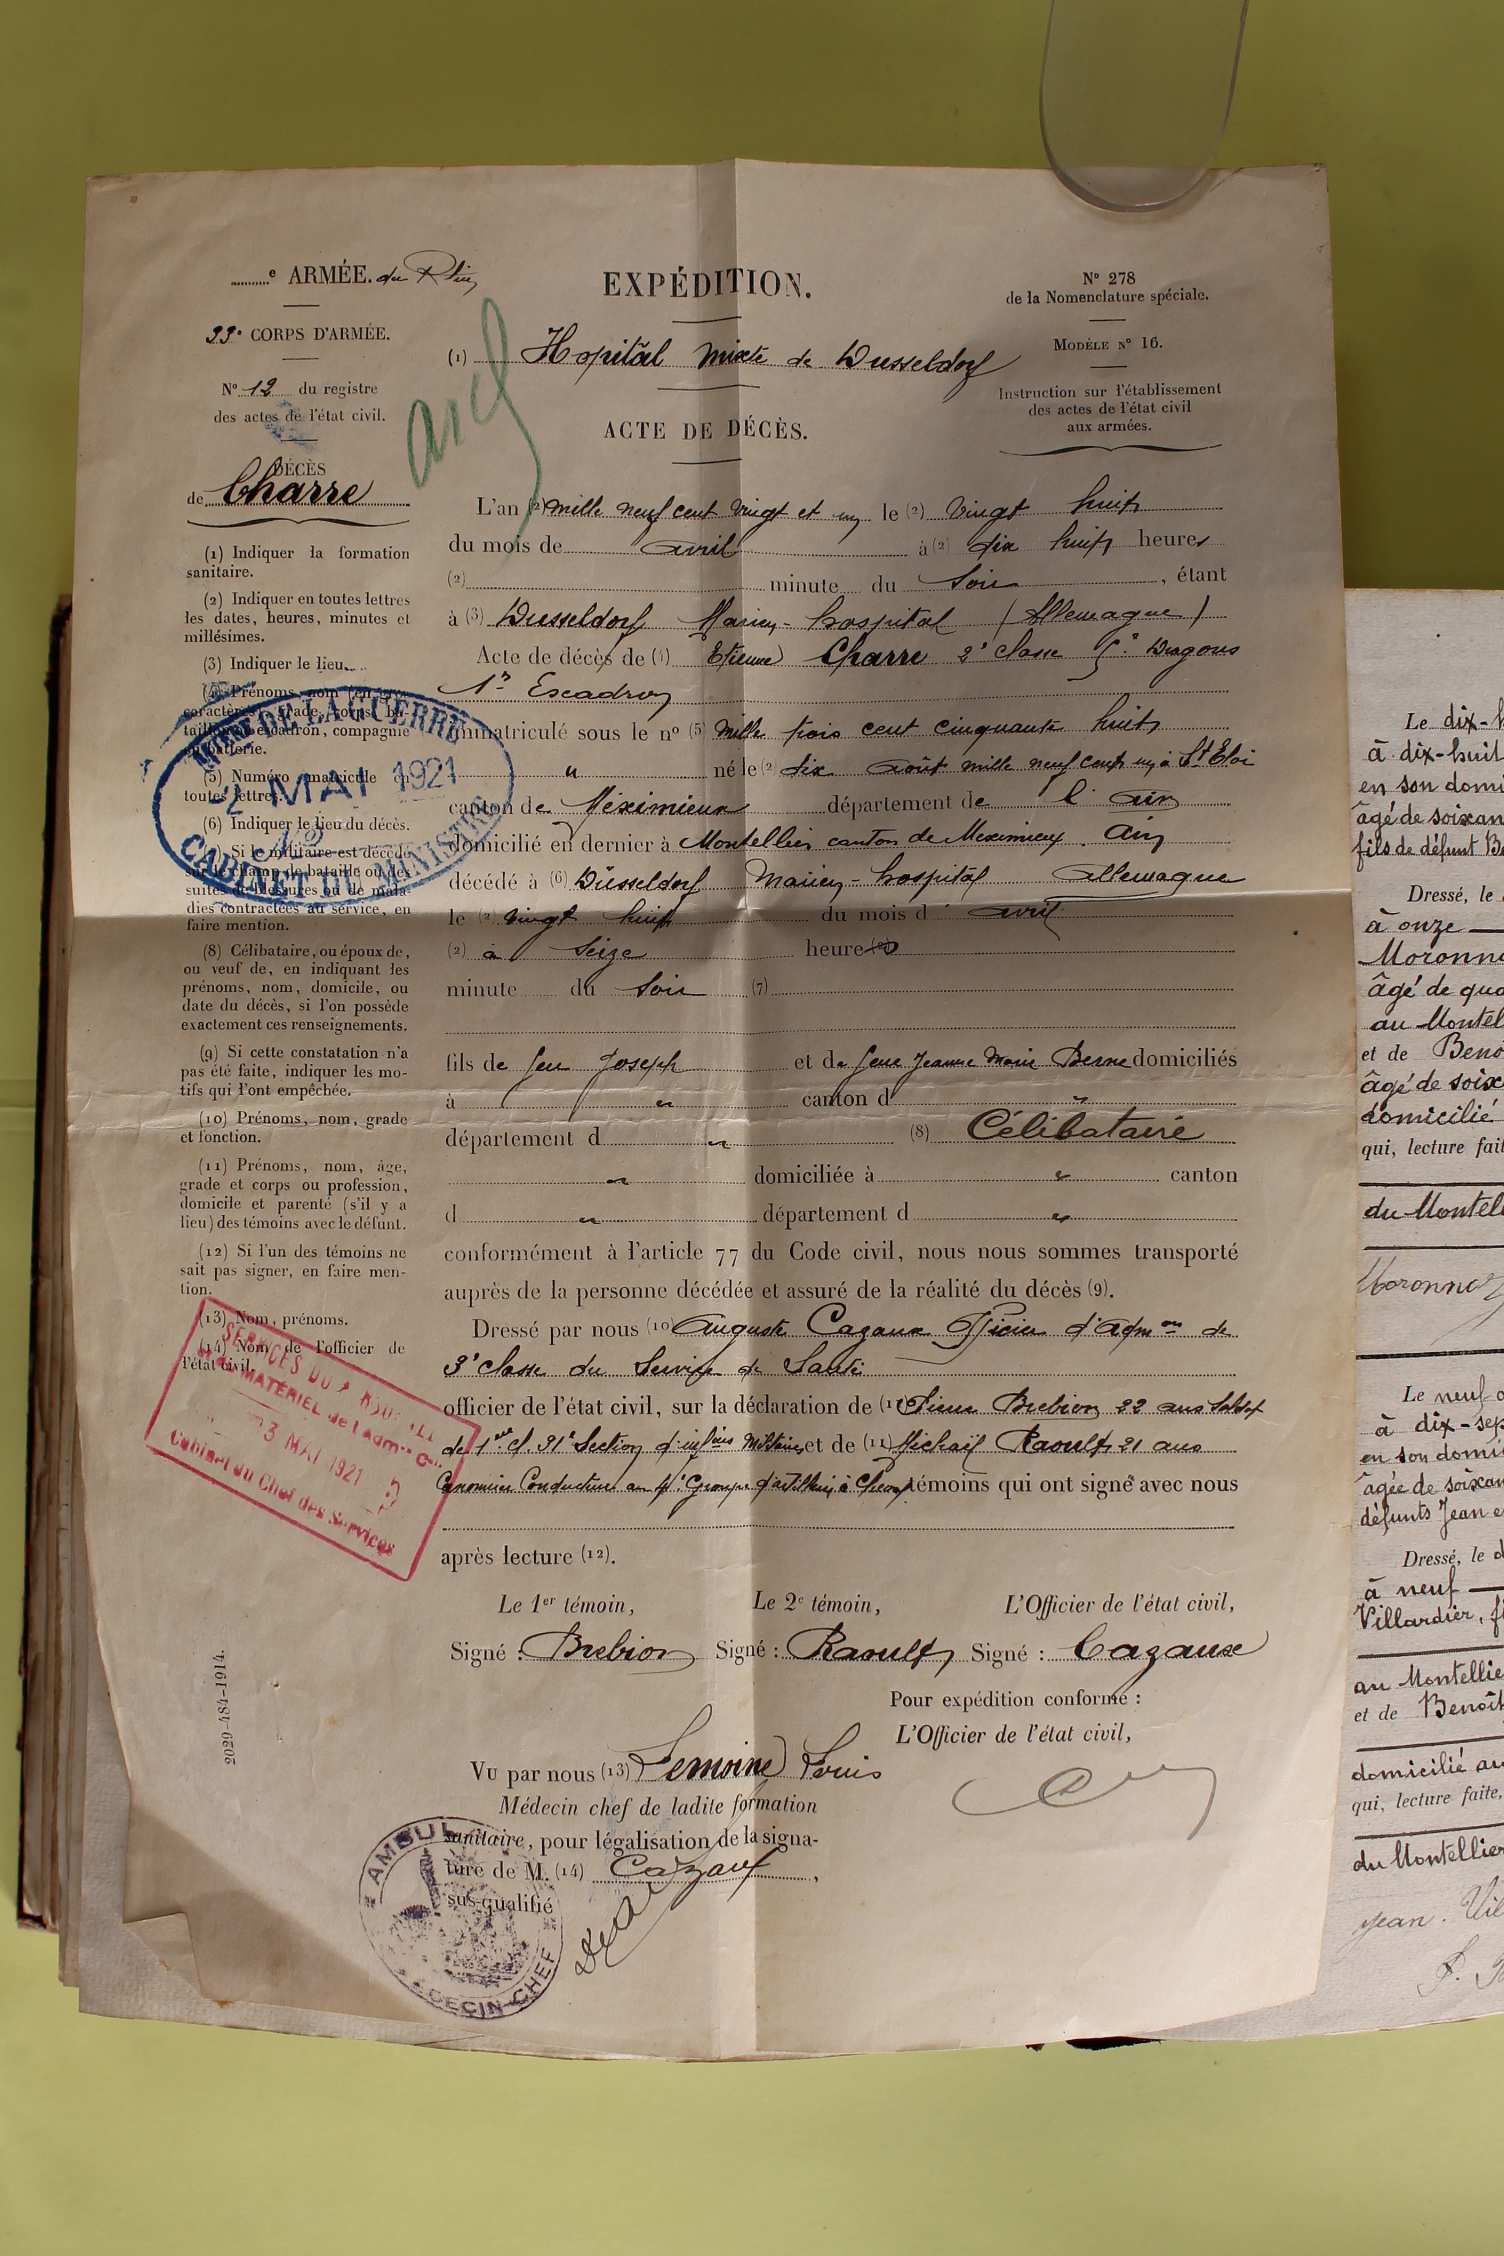 e ARMÉE. du Rhin
33e CORPS D'ARMÉE.
No 12 du registre
des actes de l'état civil.
DÉCÈS
de Charre
(1) Indiquer la formation
sanitaire.
(2) Indiquer en toutes lettres
les dates, heures, minutes et
millésimes.
(3) Indiquer le lieu
(4) Prénoms, nom (en gros
caractères), grade, corps, ba-
taillon, escadron, compagnie
ou batterie.
(5) Numéro matricule en
toutes lettres.
(6) Indiquer le lieu du décès.
(7) Si le militaire est décédé
sur le champ de bataille ou des
suites de blessures ou de mala-
dies contractées au service, en
faire mention.
(8) Célibataire, ou époux de,
ou veuf de, en indiquant les
prénoms, nom, domicile, ou
date du décès, si l'on possède
exactement ces renseignements.
(9) Si cette constatation n'a
pas été faite, indiquer les mo-
tifs qui l'ont empêchée.
(10) Prénoms, nom, grade
et fonction.
(11) Prénoms, nom, âge,
grade et corps ou profession,
domicile et parenté (s'il y a
lieu) des témoins avec le défunt.
(12) Si l'un des témoins ne
sait pas signer, en faire men-
tion.
(13) Nom, prénoms.
(14) Nom de l'officier de
l'état civil.
Mtre DE LA GUERRE
2 MAI 1921
CABINET DU MINISTRE
SERVICES DU
MATÉRIEL de l'admon
3 MAI 1921
Cabinet du Chef des Services
2029-484-1914.
EXPÉDITION.
(1) Hopital mixte de Dusseldorf
ACTE DE DÉCÈS.
No 278
de la Nomenclature spéciale.
MODÈLE No 16.
Instruction sur l'établissement
des actes de l'état civil
aux armées.
L'an (2) mille neuf cent vingt et un le (2) vingt huit
du mois de avril à (2) dix huit heures
(2) minute du soir, étant
à (3) Dusseldorf Marien-hospital (Allemagne)
Acte de décès de (4) Etienne Charre 2e classe 5e Dragons
1er Escadron
immatriculé sous le no (5) mille trois cent cinquante huit
" né le (2) dix août mille neuf cent un à St Eloi
canton de Méximieux département de l'ain
domicilié en dernier à Montellier canton de Meximieux. Ain
décédé à (6) Düsseldorf Marien-hospital allemagne
le (2) vingt huit du mois d'avril
(2) à seize heure (2)
minute du soir (7)
fils de feu Joseph et de feue Jeanne Marie Berne domiciliés
à " canton d "
département d " (8) Célibataire
" domiciliée à " canton
d " département d "
conformément à l'article 77 du Code civil, nous nous sommes transporté
auprès de la personne décédée et assuré de la réalité du décès (9).
Dressé par nous (10) Auguste Cazaux Officier d'Admon de
3e classe du Service de Santé
officier de l'état civil, sur la déclaration de (11) Pierre Brebion 22 ans Soldat
de 1ère cl. 31e Section d'infiers militaires et de (11) Michaël Raoult 21 ans
Canonnier Conducteur au 4e Groupe d'artillerie à Cheval témoins qui ont signé avec nous
après lecture (12).
Le 1er témoin,
Le 2e témoin,
L'Officier de l'état civil,
Signé : Brebion
Signé : Raoult
Signé : Cazaux
Pour expédition conforme :
L'Officier de l'état civil,
Vu par nous (13) Lemoine Louis
Médecin chef de ladite formation
sanitaire, pour légalisation de la signa-
ture de M. (14) Cazaux,
sus-qualifié
AMBUL
MÉDECIN-CHEF
Le dix-h
à dix-huit
en son domi
âgé de soixan
fils de défunt Be
Dressé, le
à onze
Moronno
âgé de qua
au Montel
et de Beno
âgé de soixa
domicilié
qui, lecture fait
du Montell
Le neuf
à dix-sep
en son domi
âgée de soixan
défunts Jean e
Dressé, le d
à neuf
Villardier, fi
au Montellie
et de Benoît
domicilié au
qui, lecture faite,
du Montellier
Jean. Vil